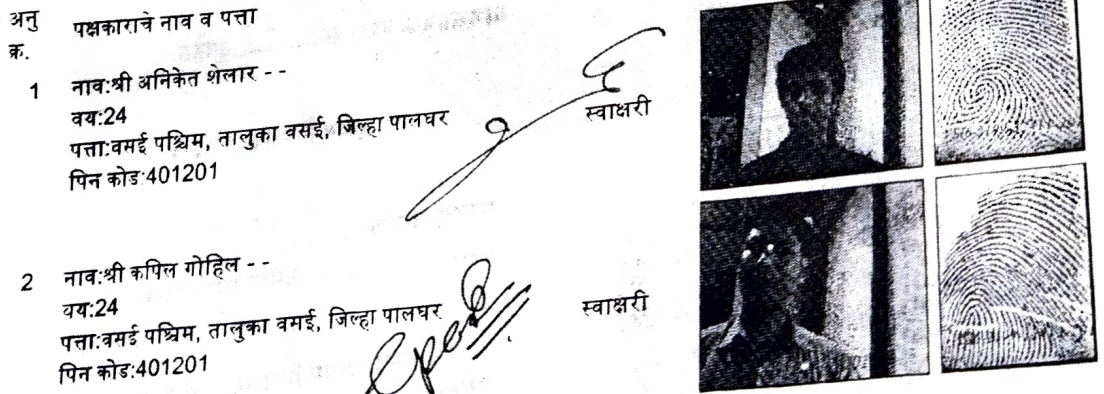 अनु क्र. पक्षकाराचे नाव व पत्ता
1 नाव:श्री अनिकेत शेलार - -
वय:24
पत्ता:वसई पश्चिम, तालुका वसई, जिल्हा पालघर
पिन कोड:401201
स्वाक्षरी
2 नाव:श्री कपिल गोहिल - -
वय:24
पत्ता:वसई पश्चिम, तालुका वसई, जिल्हा पालघर
पिन कोड:401201
स्वाक्षरी